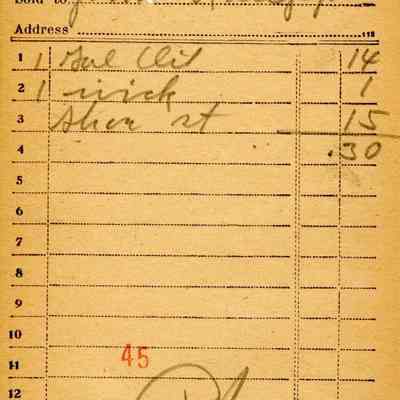 Sold to
Address 115
1 1 Gal Oil 14
2 1 wick 1
3 15
4 .30
5
6
7
8
9
10
11 45
12